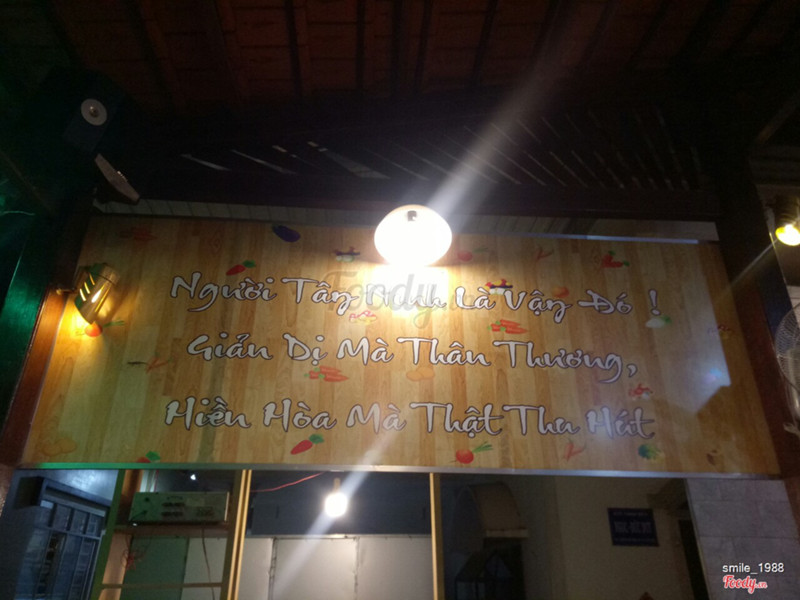 Người Tây Ninh Là Vậy Đó !
Giản Dị Mà Thân Thương,
Hiền Hòa Mà Thật Thu Hút
Foody
smile_1988
Foody.vn